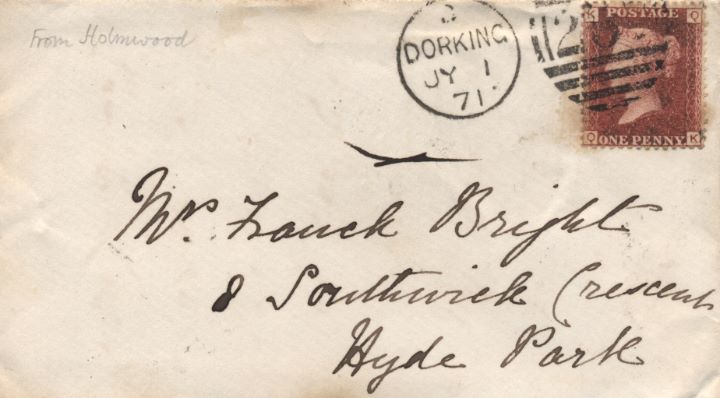 From Holmwood
DORKING
JY 1
71
K POSTAGE Q
Q ONE PENNY K
Mrs. Franck Bright
8 Southwick Crescent
Hyde Park